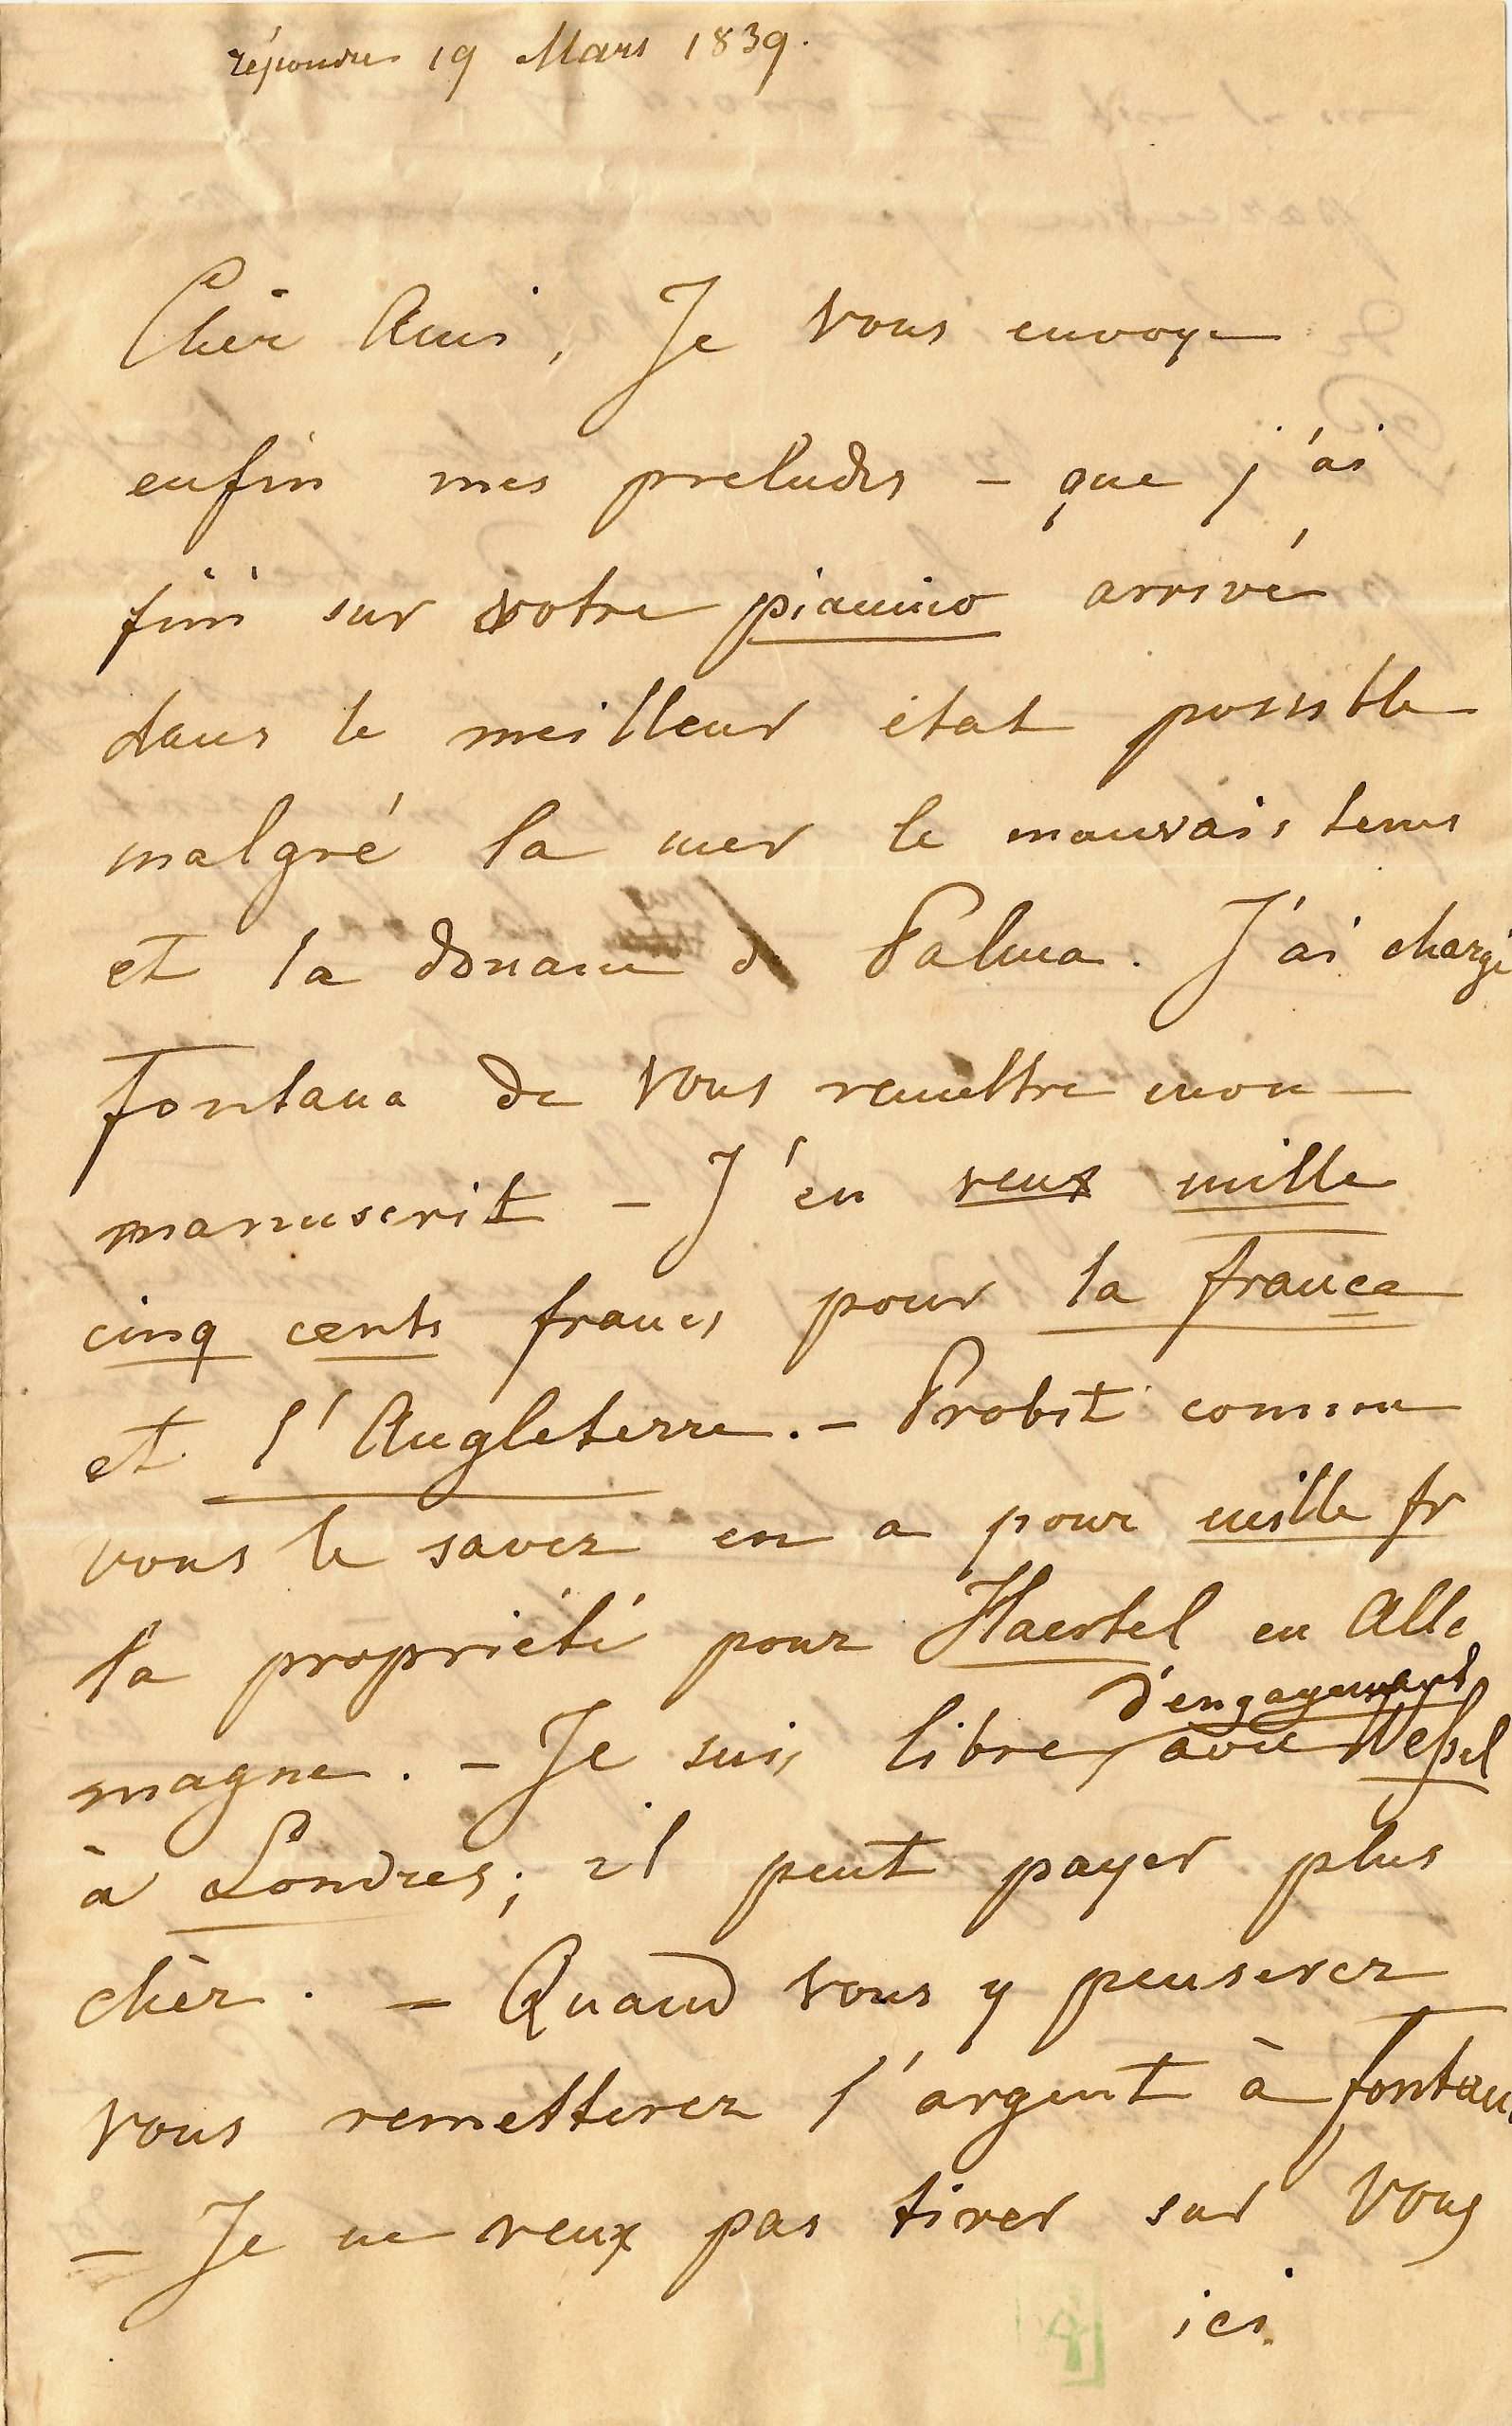 répondu 19 Mars 1839.
Cher Ami, Je vous envoye
enfin mes preludes – que j'ai
fini sur votre pianino arrivé
dans le meilleur état possible
malgré la mer le mauvais tems
et la douane de Palma. J'ai chargé
Fontana de vous remettre mon
manuscrit – J'en veux mille
cinq cents francs pour la france
et l'Angleterre. – Probst comme
vous le savez en a pour mille fr
la propriété pour Haertel en Alle
magne. – Je suis libre d'engagement avec Wessel
à Londres; il peut payer plus
chèr. – Quand vous y penserez
vous remetterez l'argent à Fontana
– Je ne veux pas tirer sur vous
ici